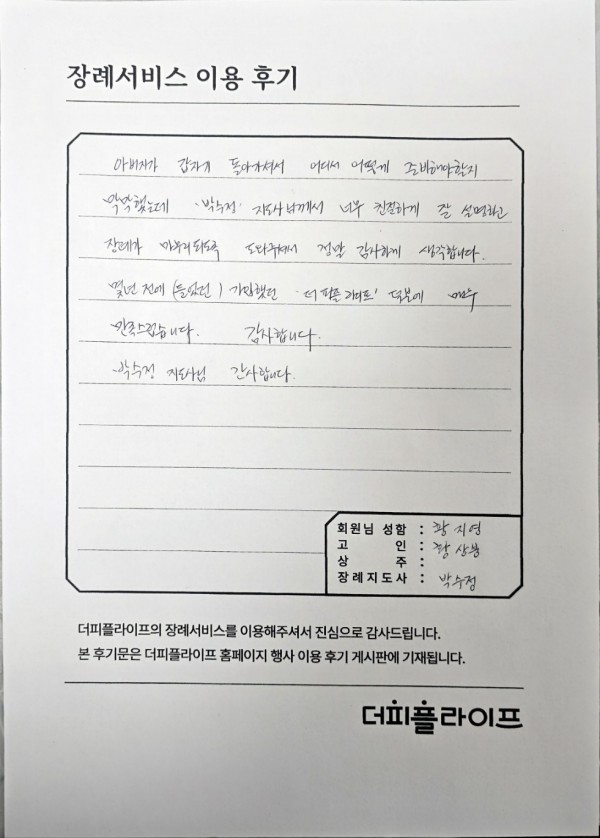 장례서비스 이용 후기
아버지가 갑자기 돌아가셔서 어디서 어떻게 준비해야할지
막막했는데 '박수정' 지도사님께서 너무 친절하게 잘 설명하고
장례가 마무리되도록 도와주셔서 정말 감사하게 생각합니다.
몇년 전에 (들었던) 가입했던 '더피플라이프' 덕분에 매우
만족스럽습니다. 감사합니다.
박수정 지도사님 감사합니다.
회원님 성함 : 황지영
고 인 : 황상봉
상 주 :
장례지도사 : 박수정
더피플라이프의 장례서비스를 이용해주셔서 진심으로 감사드립니다.
본 후기문은 더피플라이프 홈페이지 행사 이용 후기 게시판에 기재됩니다.
더피플라이프